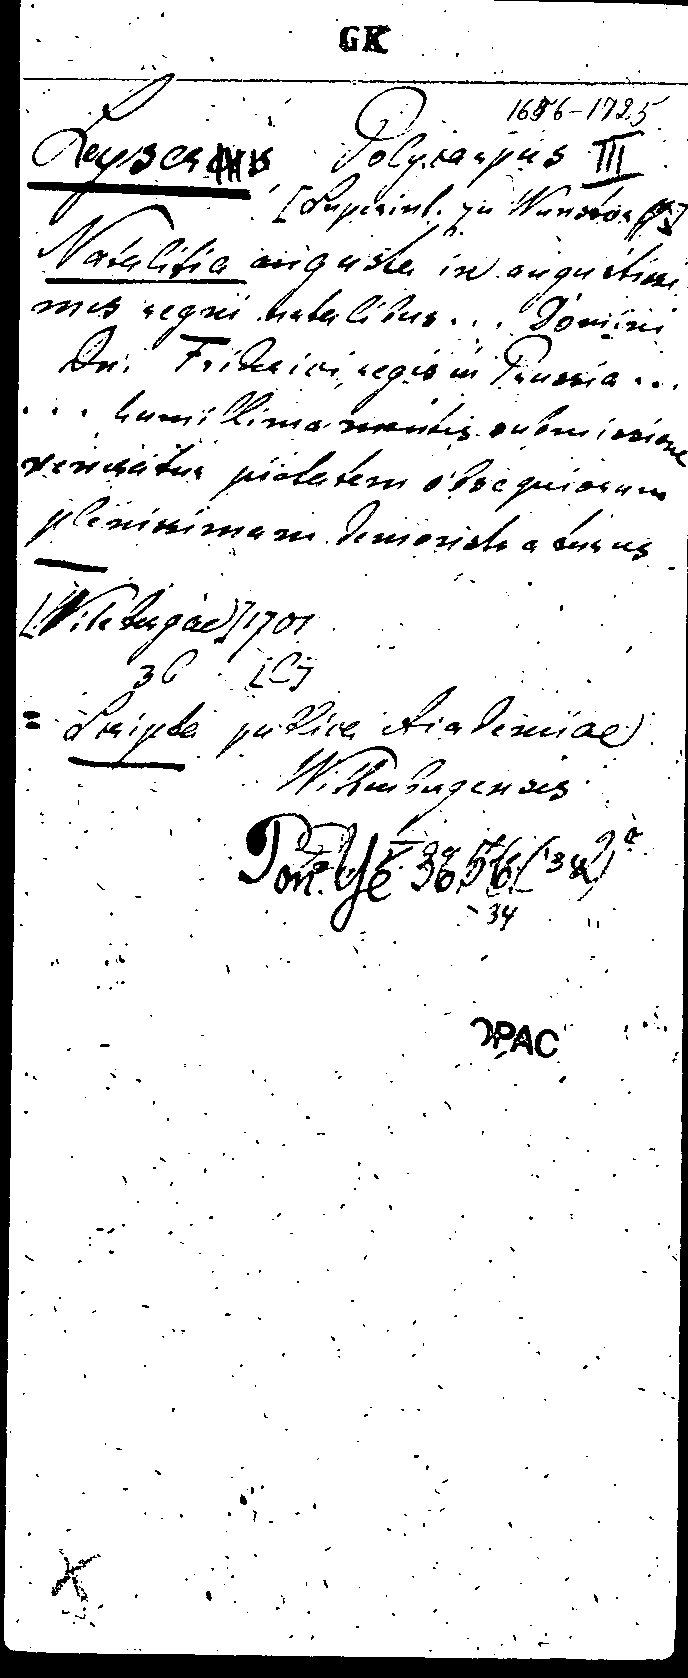 GK
1656-1725
Leyserus Polycarpus III
[Superint. zu Wunstorf]
Natalitia augusta in augustissi
mis regni natalibus ... Domini
Dn. Friderici, regis in Prussia ...
... humillima mentis submissione
veneratur pietatem obsequiorum
plenissimam demonstraturus
[Wittebergae] 1701
= Scripta publica Academiae
Wittenbergensis
34
OPAC